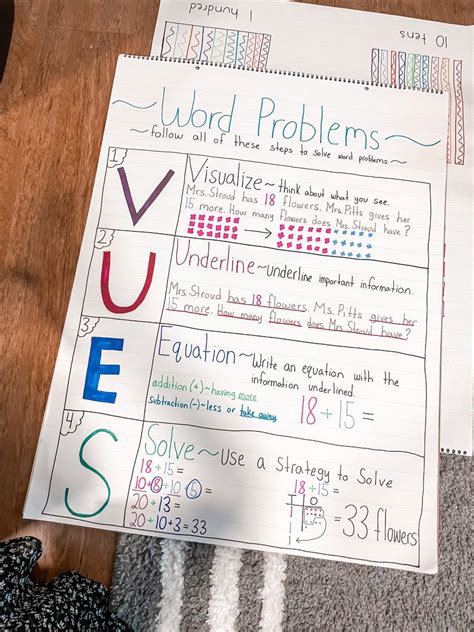 1 hundred
10 tens
~Word Problems~
~follow all of these steps to solve word problems~
1
V
Visualize~ think about what you see.
Mrs. Stroud has 18 flowers. Mrs. Pitts gives her
15 more. How many flowers does Mrs. Stroud have?
2
U
Underline~underline important information.
Mrs. Stroud has 18 flowers. Ms. Pitts gives her
15 more. How many flowers does Mrs. Stroud have?
3
E
Equation~Write an equation with the
information underlined.
addition (+)~having more
subtraction (-)~less or take away
18+15=
4
S
Solve~Use a Strategy to Solve
18+15=
10+8+10+5
20+13=
20+10+3=33
18+15=
T O
=33 flowers